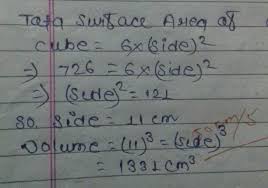 Total Surface Area of
cube = 6×(side)²
⇒ 726 = 6×(side)²
⇒ (side)² = 121
so. side = 11 cm
Volume = (11)³ = (side)³
= 1331 cm³